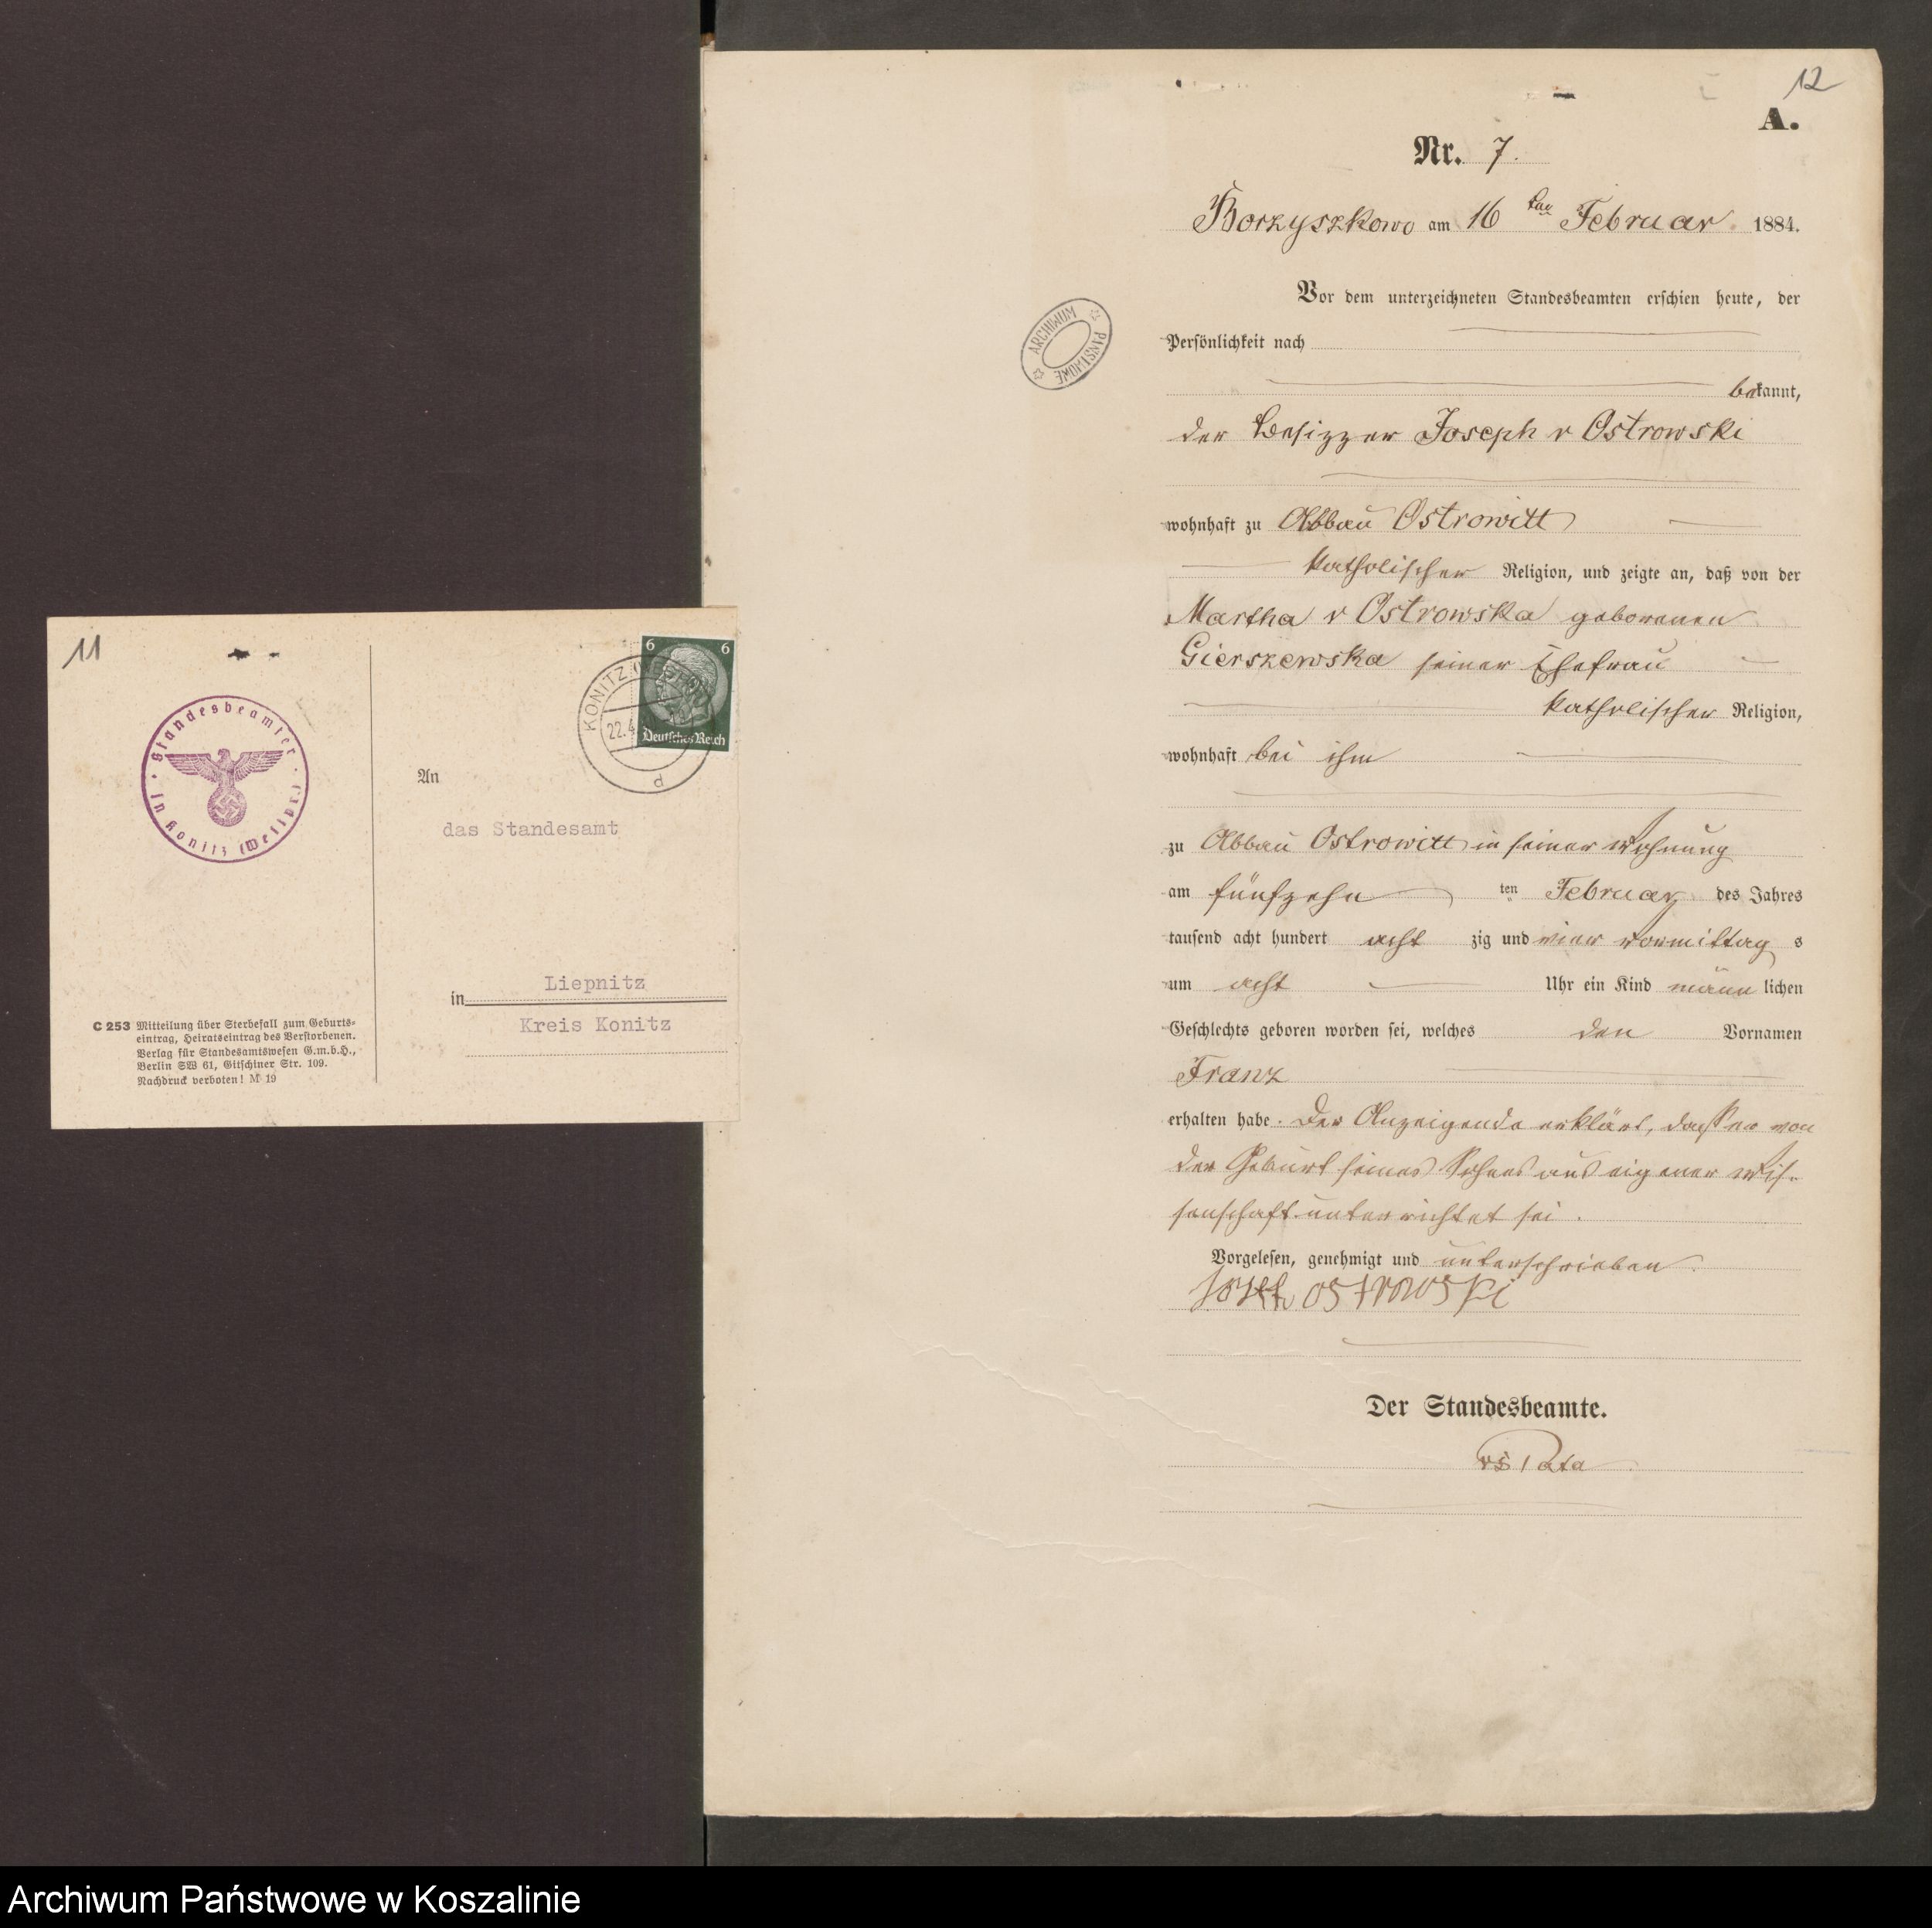 11
Standesbeamter
in Konitz (Westpr.)
6 6
Deutsches Reich
KONITZ (WESTPR)
22.4
d
An
das Standesamt
Liepnitz
in
Kreis Konitz
C 253 Mitteilung über Sterbefall zum Geburts-
eintrag, Heiratseintrag des Verstorbenen.
Verlag für Standesamtswesen G.m.b.H.,
Berlin SW 61, Gitschiner Str. 109.
Nachdruck verboten! M 19
12
A.
Nr. 7.
Borzyszkowo am 16 ten Februar 1884.
ARCHIWUM PAŃSTWOWE
Vor dem unterzeichneten Standesbeamten erschien heute, der
Persönlichkeit nach
bekannt,
der Besizzer Joseph v Ostrowski
wohnhaft zu Abbau Ostrowitt
katholischer Religion, und zeigte an, daß von der
Martha v Ostrowska geborenen
Gierszewska seiner Ehefrau
katholischer Religion,
wohnhaft bei ihm
zu Abbau Ostrowitt in seiner Wohnung
am fünfzehn ten Februar des Jahres
tausend acht hundert acht zig und vier vormittag s
um acht Uhr ein Kind männ lichen
Geschlechts geboren worden sei, welches den Vornamen
Franz
erhalten habe. Der Anzeigende erklärt, daß er von
der Geburt seines Sohnes aus eigener Wis-
senschaft unterrichtet sei.
Vorgelesen, genehmigt und unterschrieben.
Josef ostrowski
Der Standesbeamte.
Archiwum Państwowe w Koszalinie